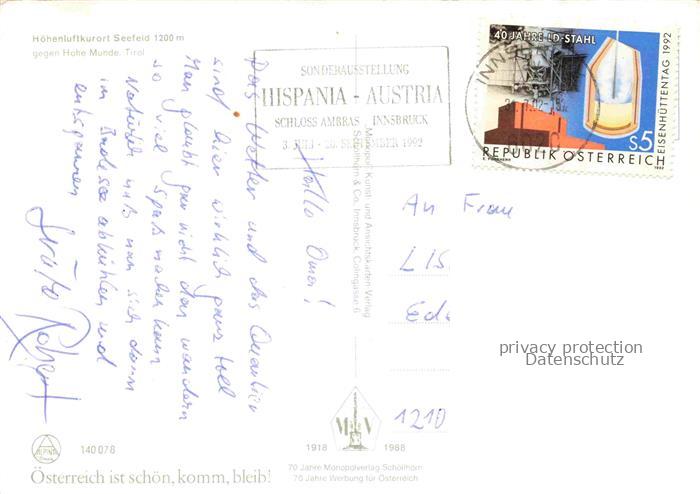 Höhenluftkurort Seefeld 1200 m
gegen Hohe Munde. Tirol
SONDERAUSSTELLUNG
HISPANIA - AUSTRIA
SCHLOSS AMBRAS INNSBRUCK
3. JULI - 20. SEPTEMBER 1992
40 JAHRE LD-STAHL
EISENHÜTTENTAG 1992
S5
REPUBLIK ÖSTERREICH
1992
INNS
6020
Hallo Oma!
Das Wetter und das Quartier
sind hier wirklich ganz toll
Man glaubt gar nicht das wandern
so viel Spaß machen kann.
Natürlich muß man sich dann
im Badesee abkühlen und
entspannen
Grüße Robert
Monopol Kunst- und Ansichtskarten Verlag
Schöllhorn & Co. Innsbruck Colingasse 6
An Frau
LIS
Ede
1210
privacy protection
Datenschutz
ALPINE
140 078
1918 M V 1988
Österreich ist schön, komm, bleib!
70 Jahre Monopolverlag Schöllhorn
70 Jahre Werbung für Österreich